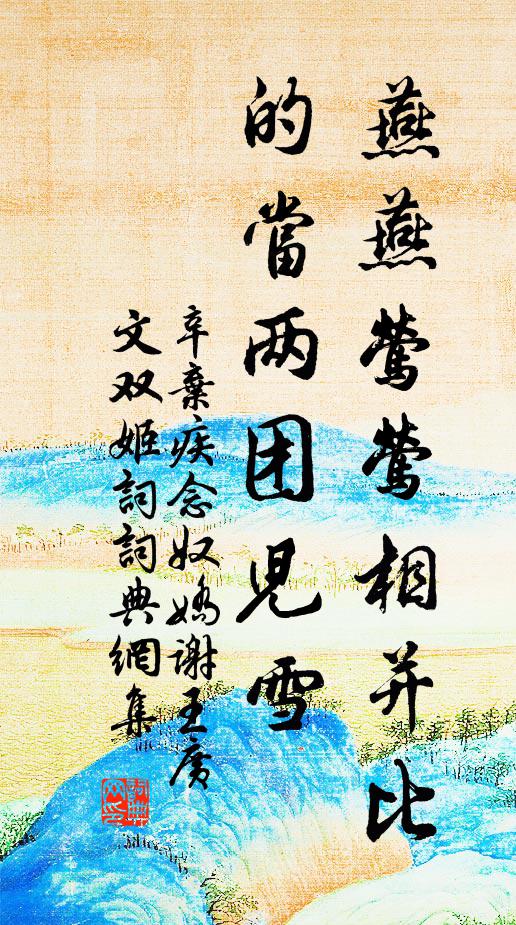 燕燕莺莺相并比
的當两团児雪
辛棄疾念奴嬌謝王廣
文双姬詞詞典網集